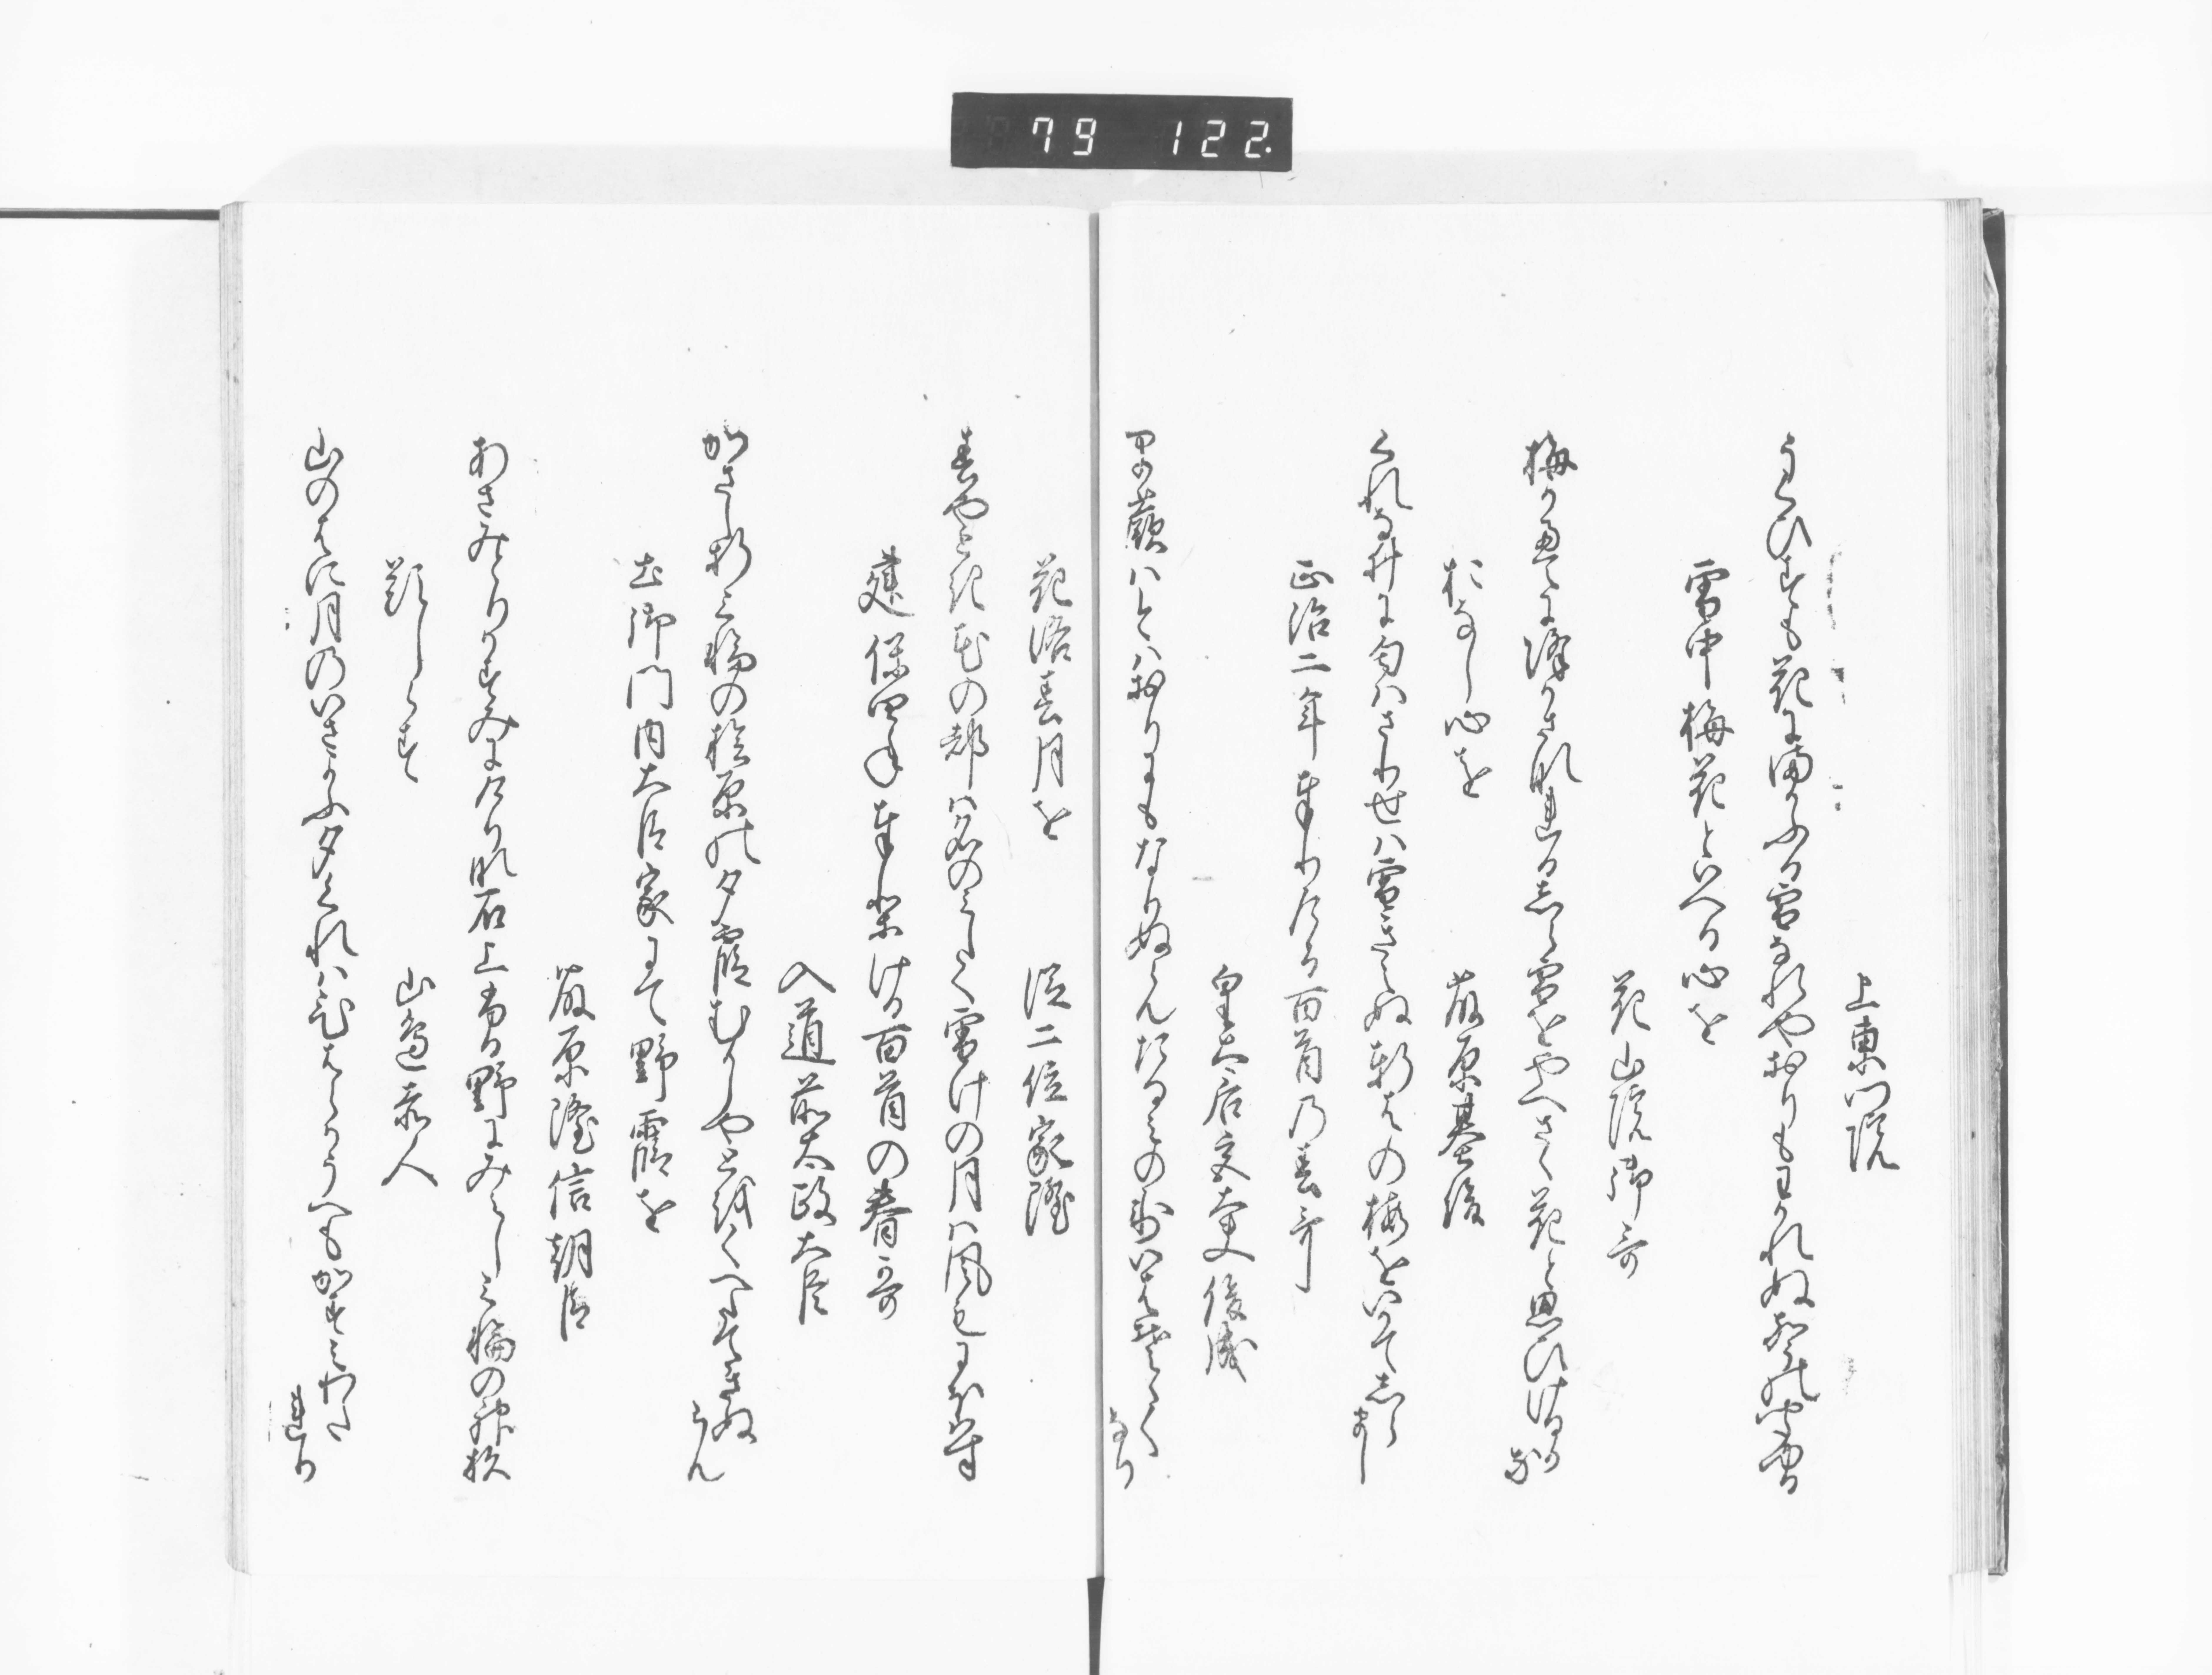 79 122.
上東門院
うくひすも花にまかふる雪なれやおりもわかれぬ
雪中梅花といへる心を
花山院御哥
梅かえに降かさなれるしら雪をやへさく花と思ひけるかな
おなし心を
藤原基俊
くれなゐに匂はさりせは雪きえぬ軒はの梅をいかてしらまし
正治二年奉りける百首乃春哥
皇太后宮大夫俊成
早蕨はいまはおりにもなりぬらんたるみの
なり
花洛春月を
従二位家隆
春やとき花の都は名のみして雪けの月は風もにほはす
建保四年奉りける百首の春哥
入道前太政大臣
かさし折三輪の桧原の夕霞むかしやとをくへたてきぬらん
土御門内大臣家にて野霞を
藤原隆信朝臣
あさみとりかすみにけりな石上ふる野にみえし三輪の神杉
題しらす
山邊赤人
山のはに月のいさよふ夕くれは
うへもかすみわたれり